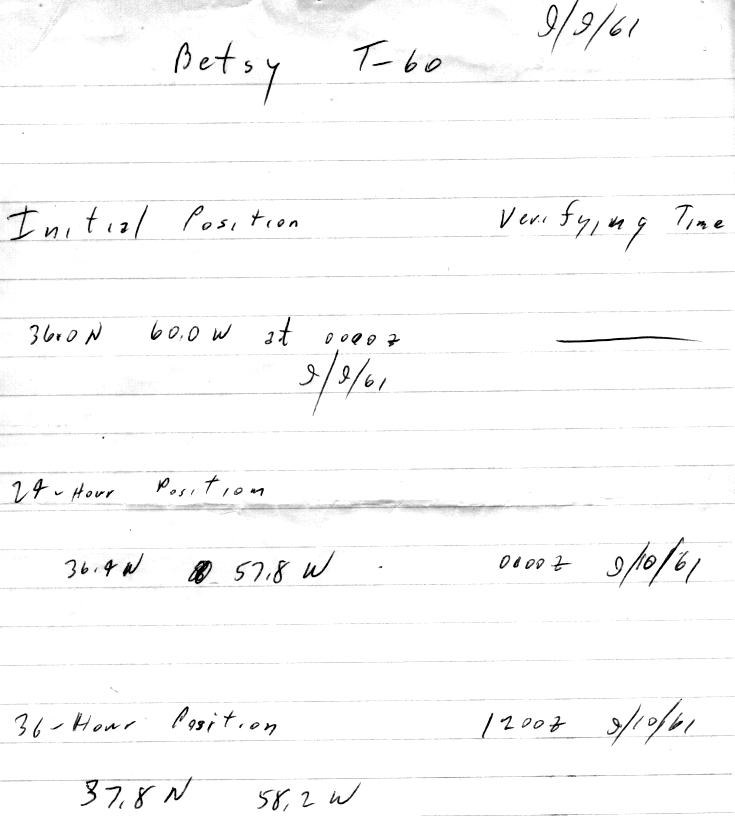 9/9/61
Betsy T-60
Initial Position Verifying Time
36.0 N 60.0 W at 0000Z
9/9/61
24-Hour Position
36.4 N 57.8 W 0000Z 9/10/61
36-Hour Position 1200Z 9/10/61
37.8 N 58.2 W